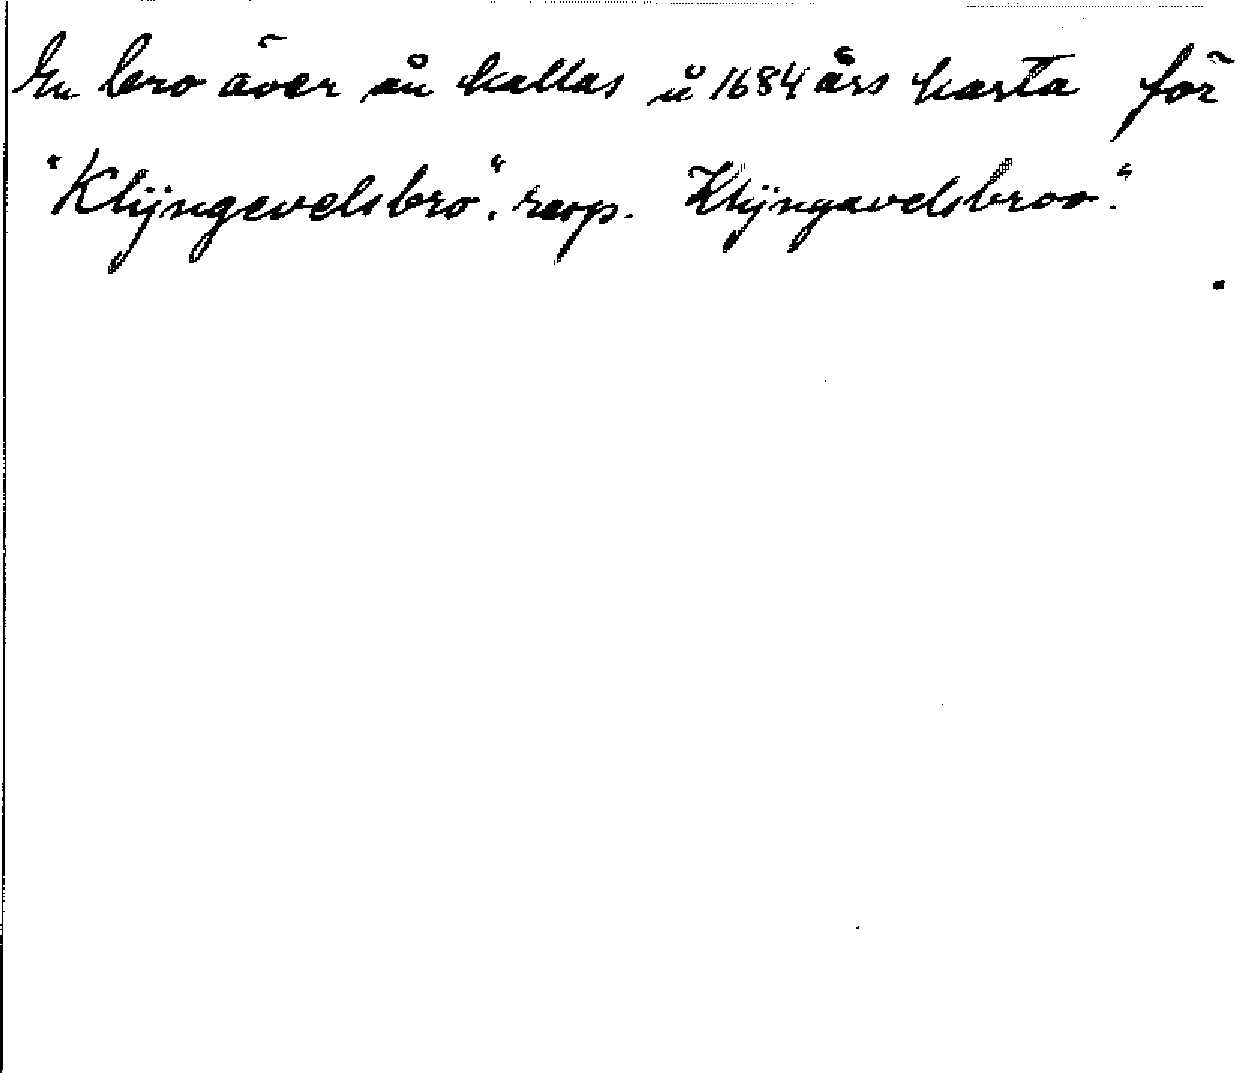 En bro över ån kallas å 1684 års karta för
"Klÿngevelsbro". resp. Klÿngavelsbroo."